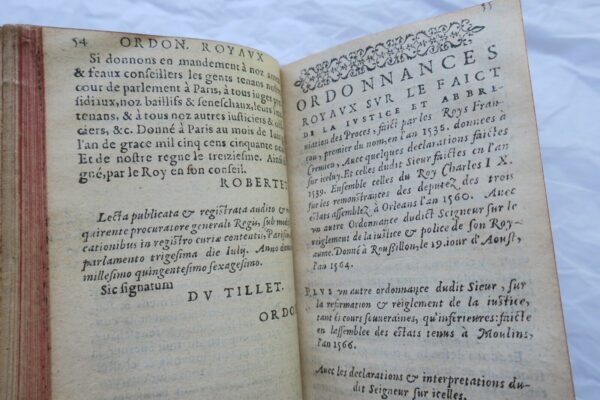 54 ORDON. ROYAVX
Si donnons en mandement à noz amez
& feaux conseillers les gents tenans nostre
cour de parlement à Paris, à tous iuges pre-
sidiaux, noz baillifs & seneschaux, leurs lieu-
tenans, & à tous noz autres iusticiers & offi-
ciers, &c. Donné à Paris au mois de
l'an de grace mil cinq cens cinquante
Et de nostre regne le treziesme. Ainsi
gné, par le Roy en son conseil.
ROBERTET
Lecta publicata & registrata audito &
quirente procuratore generali Regis, sub modi-
cationibus in registro curiæ contentis, Parisiis
parlamento trigesima die Iuly. Anno domini
millesimo quingentesimo sexagesimo.
Sic signatum
DV TILLET.
ORDO
55
ORDONNANCES
ROYAUX SVR LE FAICT
DE LA IVSTICE ET ABBRE-
uiation des Proces, faict par les Roys Fran-
cou, premier du nom, en l'an 1535. données à
Cremieu, Auec quelques declarations faictes
sur iceluy. Et celles dudict Sieur faictes en l'an
1539. Ensemble celles du Roy Charles IX.
sur les remonstrances des deputez des trois
estats assemblez à Orleans l'an 1560. Auec
vn autre Ordonnance dudict Seigneur sur le
reiglement de la iustice & police de son Roy-
aume. Donné à Roussillon, le 19. iour d'Aoust,
l'an 1564.
PLVS vn autre ordonnance dudit Sieur, sur
la reformation & reiglement de la iustice,
tant és cours souueraines, qu'inferieures: faicte
en lassemblee des estats tenus à Moulins,
l'an 1566.
Auec les declarations & interpretations du-
dit Seigneur sur icelles.